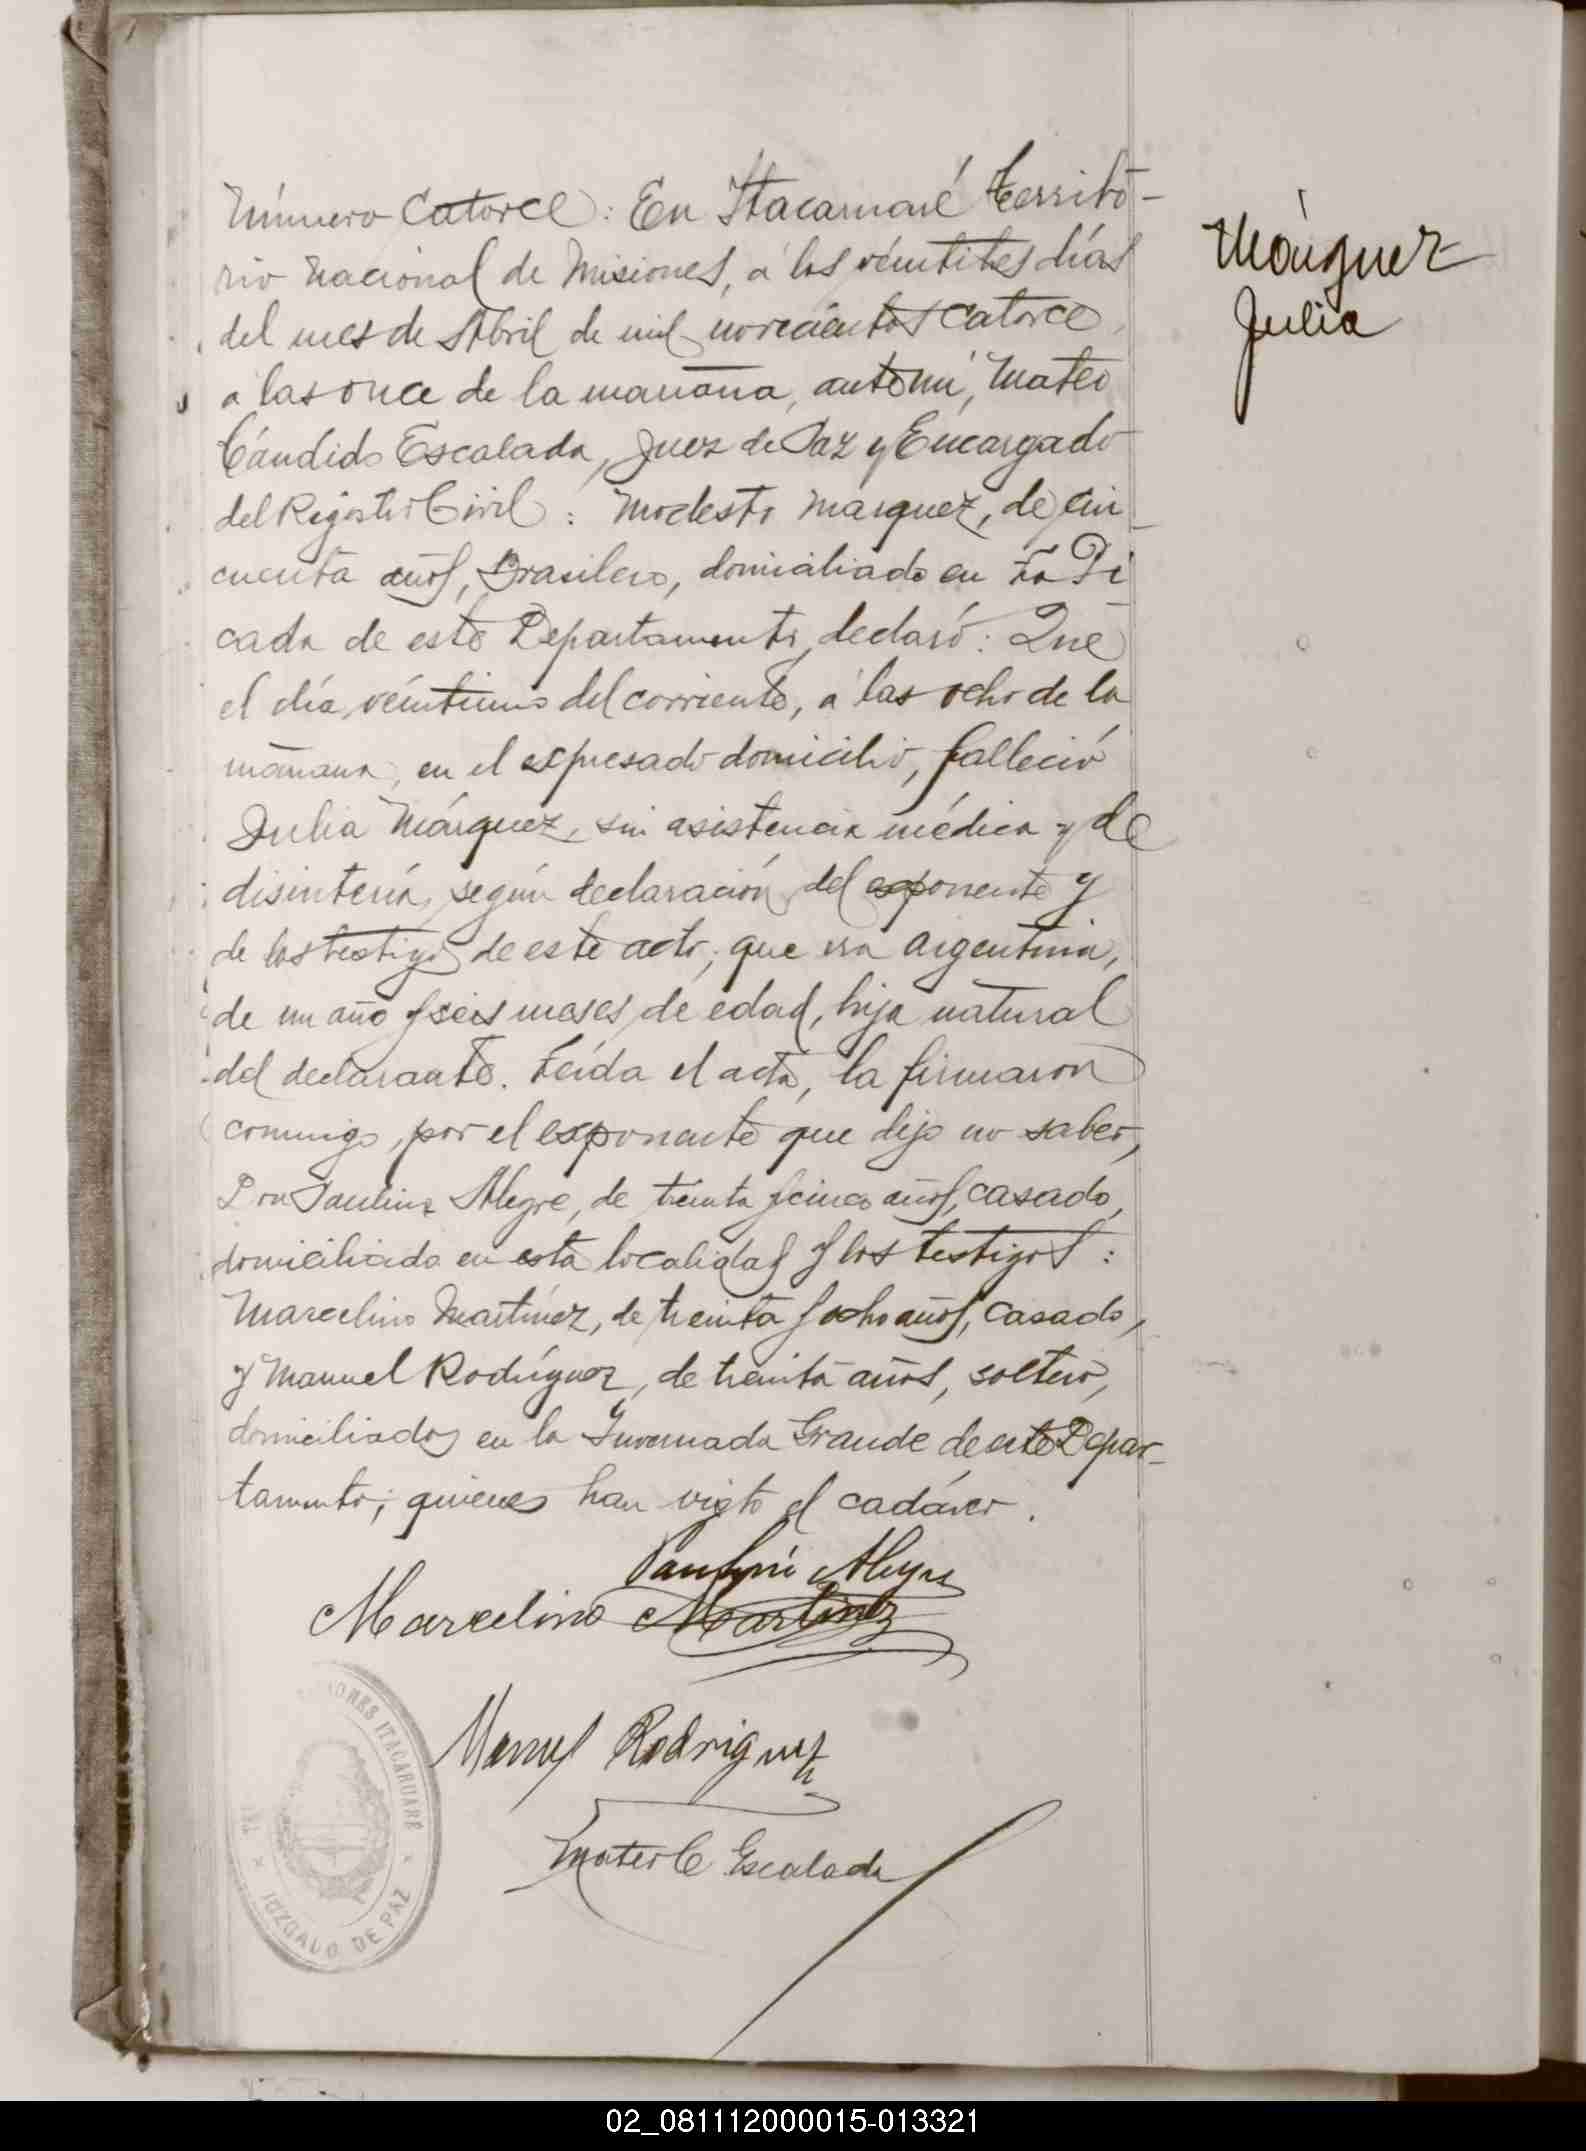 Número Catorce: En Itacaruaré Territo-
rio Nacional de Misiones, á los véintitres días
del mes de Abril de mil novecientos catorce,
á las once de la mañana, ante mí, Mateo
Cándido Escalada, Juez de Paz y Encargado
del Registro Civil: Modesto Marquez, de cin-
cuenta años, Brasilero, domiciliado en La Pi-
cada de este Departamento, declaró: Que
el día véintiuno del corriente, á las ocho de la
mañana, en el espresado domicilio, falleció
Julia Márquez, sin asistencia médica y de
disintería, según declaración del esponente y
de los testigos de este acto; que era argentina,
de un año y seis meses de edad, hija natural
del declarante. Leída el acta, la firmaron
conmigo, por el esponente que dijo no saber,
Don Paulino Alegre, de treinta y cinco años, casado,
domiciliado en esta localidad y los testigos:
Marcelino Martínez, de treinta y ocho años, casado,
y Manuel Rodríguez, de treinta años, soltero,
domiciliados en la Invernada Grande de este Depar-
tamento; quienes han visto el cadáver.
Márquez
Julia
Marcelino Martinez
Manuel Rodriguez
Mateo C Escalada
ITACARUARE
JUZGADO DE PAZ
02_081112000015-013321